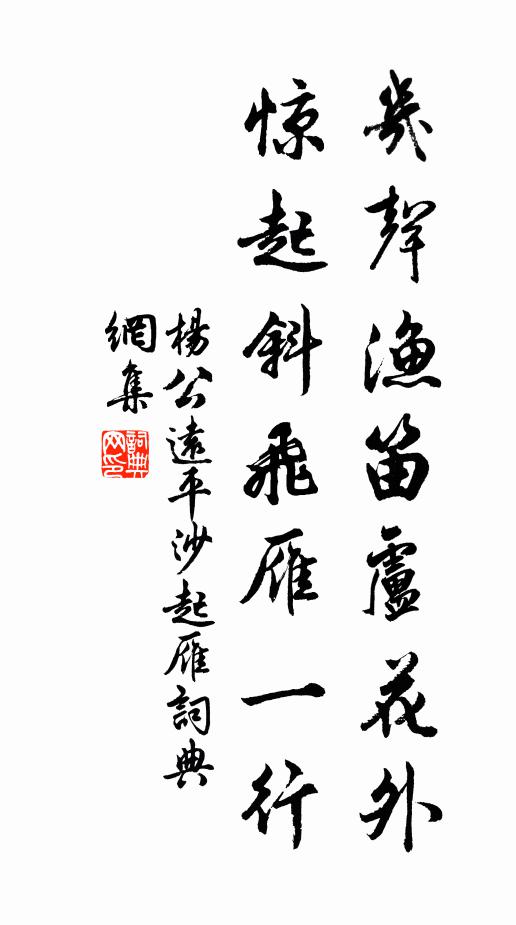 幾聲漁笛蘆花外
惊起斜飛雁一行
楊公遠平沙起雁詞典
網集
詞典網印